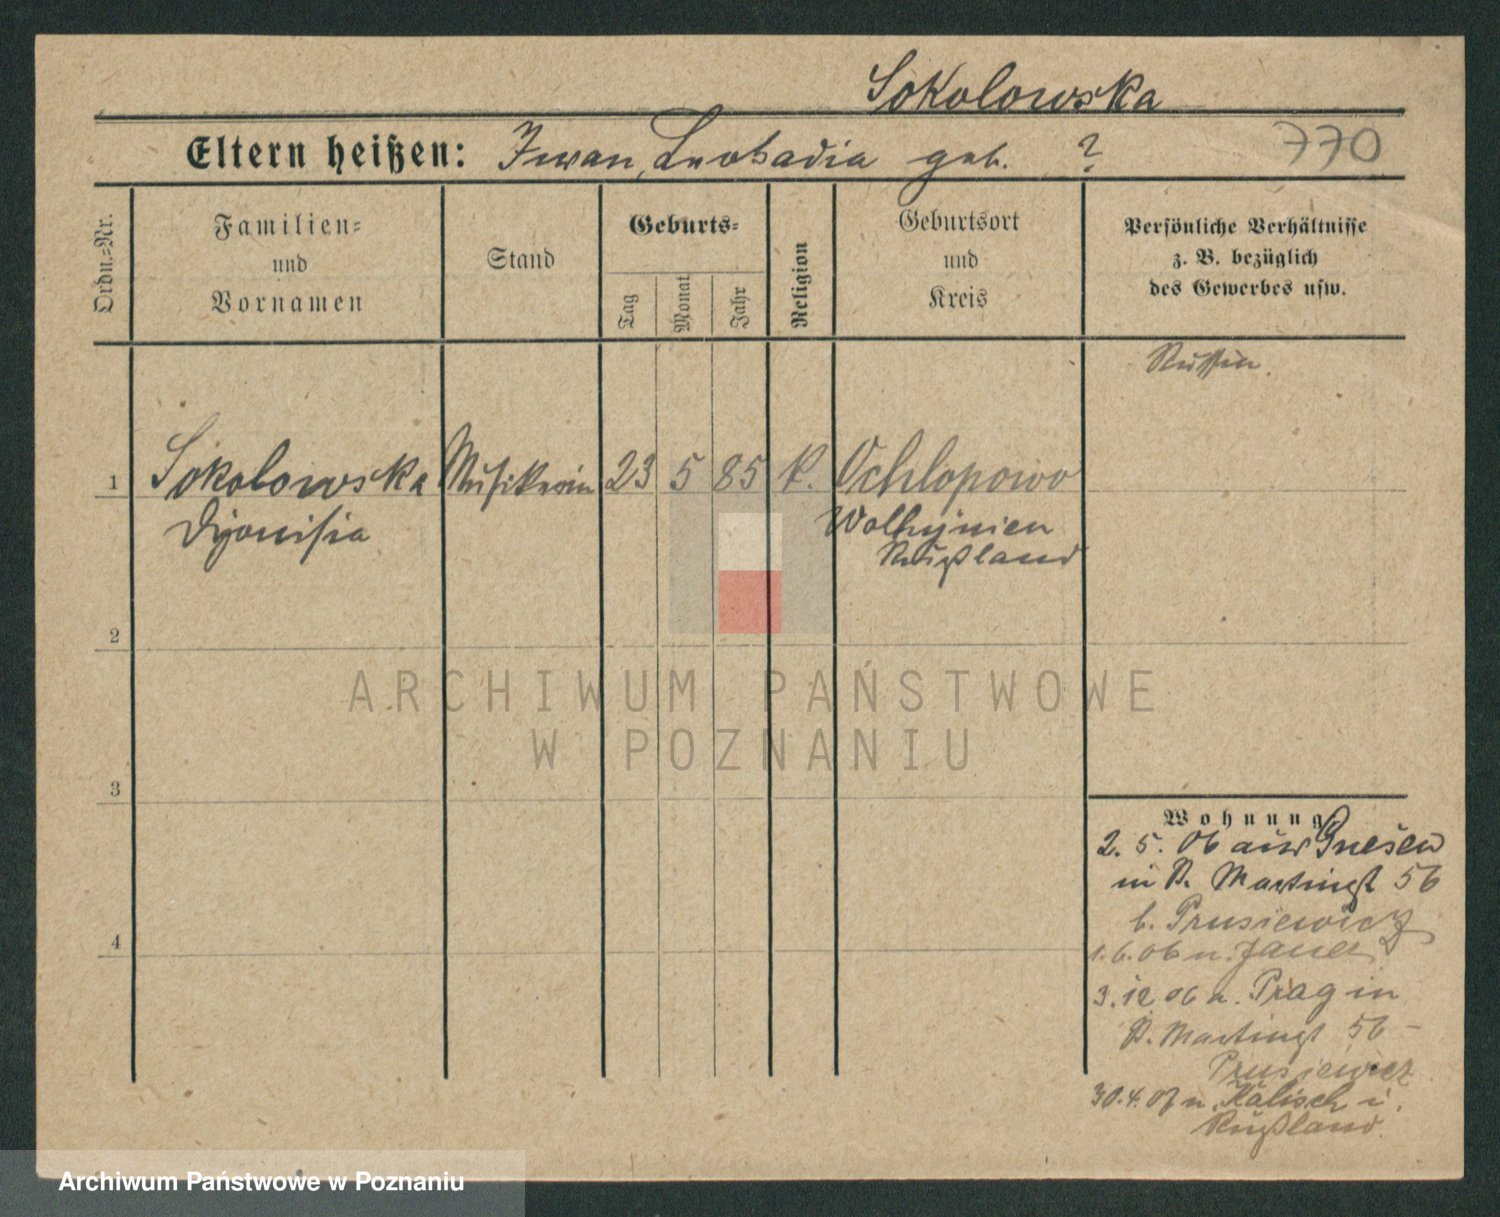 Sokolowska
Eltern heißen: Iwan, Leokadia geb. ?
770
Ordn.-Nr.
Familien-
und
Vornamen
Stand
Geburts-
Tag
Monat
Jahr
Religion
Geburtsort
und
Kreis
Persönliche Verhältnisse
z. B. bezüglich
des Gewerbes usw.
Russin.
1 Sokolowska Musikerin 23 5 85 k. Ochlopowo
Dyonisia Wolhynien
Rußland
2
3
4
Wohnung
2. 5. 06 aus Gnesen
in P. Martinst 56
b. Prusiewicz
1. 6. 06 n. Jauer
3. 12 06 a. Prag in
P. Martinst 56 -
Prusiewicz
30. 4. 07 n. Kalisch i.
Rußland.
ARCHIWUM PAŃSTWOWE
W POZNANIU
Archiwum Państwowe w Poznaniu